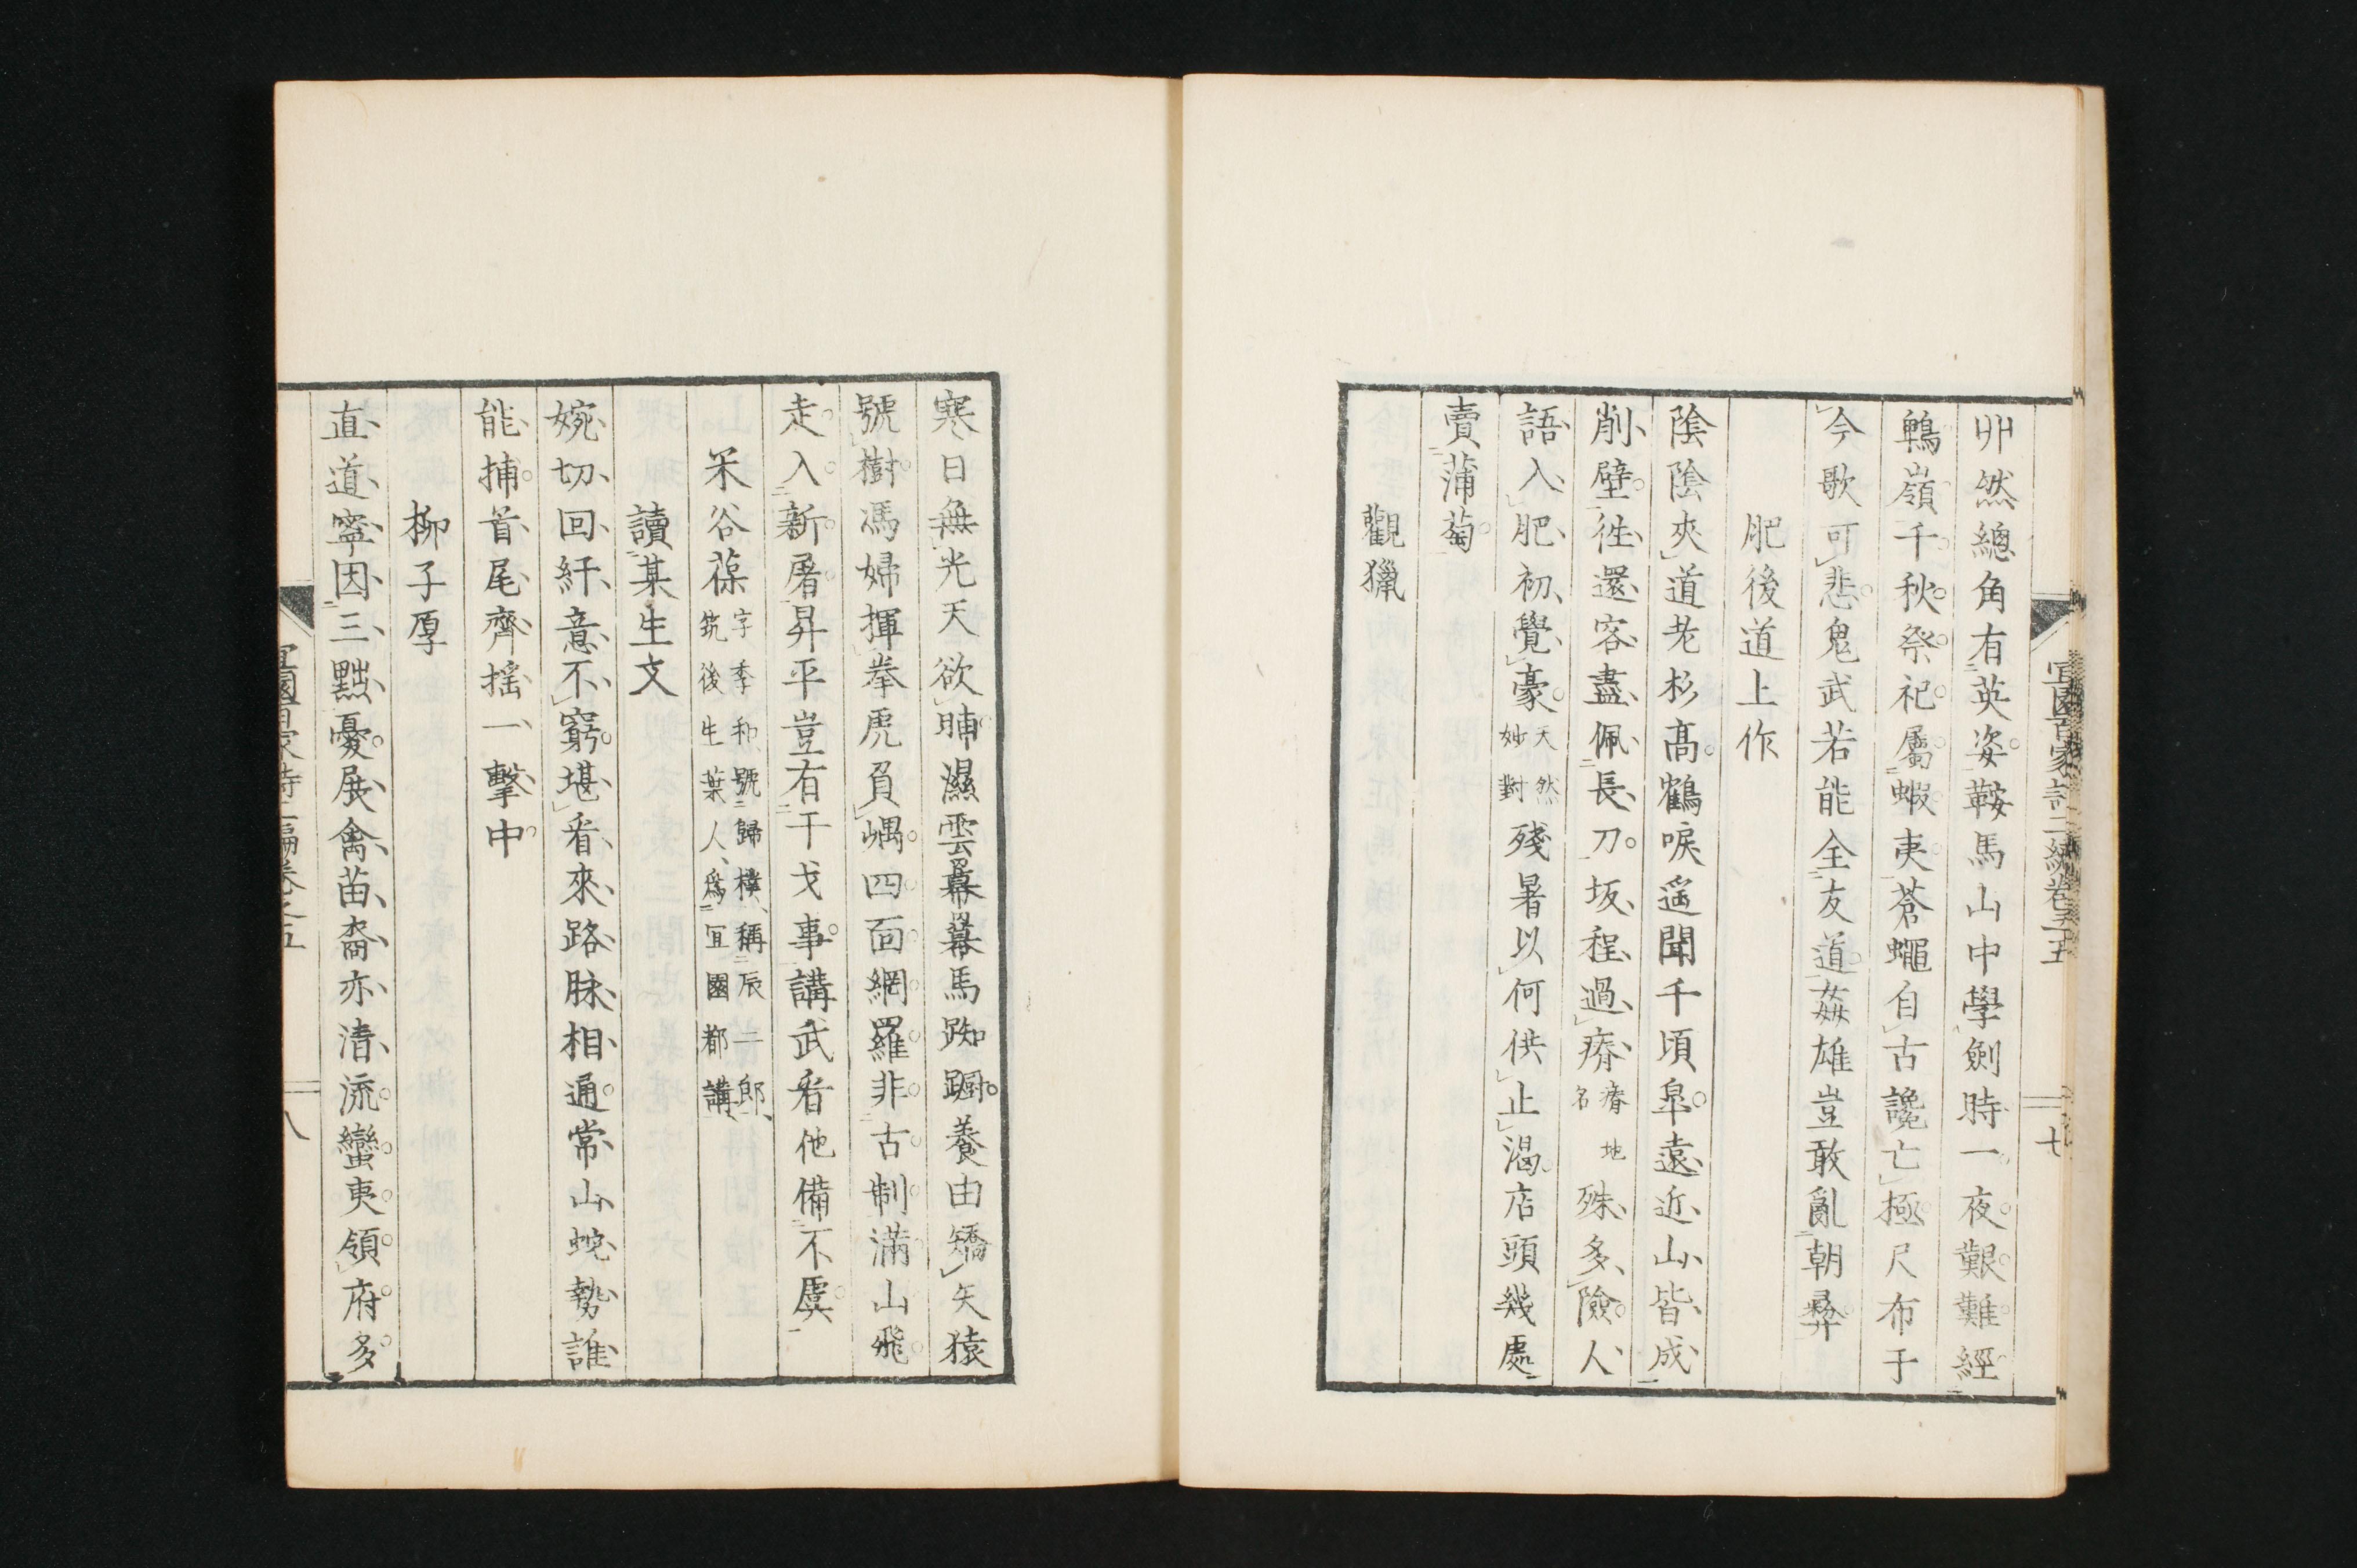 丱然總角有英姿鞍馬山中學劍時一夜艱難經
鵯嶺千秋祭祀屬蝦夷蒼蠅自古讒亡極尺布于
今歌可悲鬼武若能全友道姦雄豈敢亂朝彝
肥後道上作
陰陰夾道老杉高鶴唳遙聞千頃皐遠近山皆成
削壁往還客盡佩長刀坂程過瘠瘠地名殊多險人
語入肥初覺豪天然妙對殘暑以何供止渴店頭幾處
賣蒲萄
觀獵
宜園百家詩二編卷之五
七
寒日無光天欲晡濕雲羃羃馬踟蹰養由矯矢猿
號樹馮婦揮拳虎負嵎四面網羅非古制滿山飛
走入新屠昇平豈有干戈事講武看他備不虞
谷葆字季和、號歸樸、稱辰二郎、筑後生葉人、爲宜園都講、
讀某生文
婉切回紆意不窮堪看來路脉相通常山蛇勢誰
能捕首尾齊搖一擊中
柳子厚
直道寧因三黜憂展禽苗裔亦清流蠻夷領府多
宜園百家詩二編卷之五
八